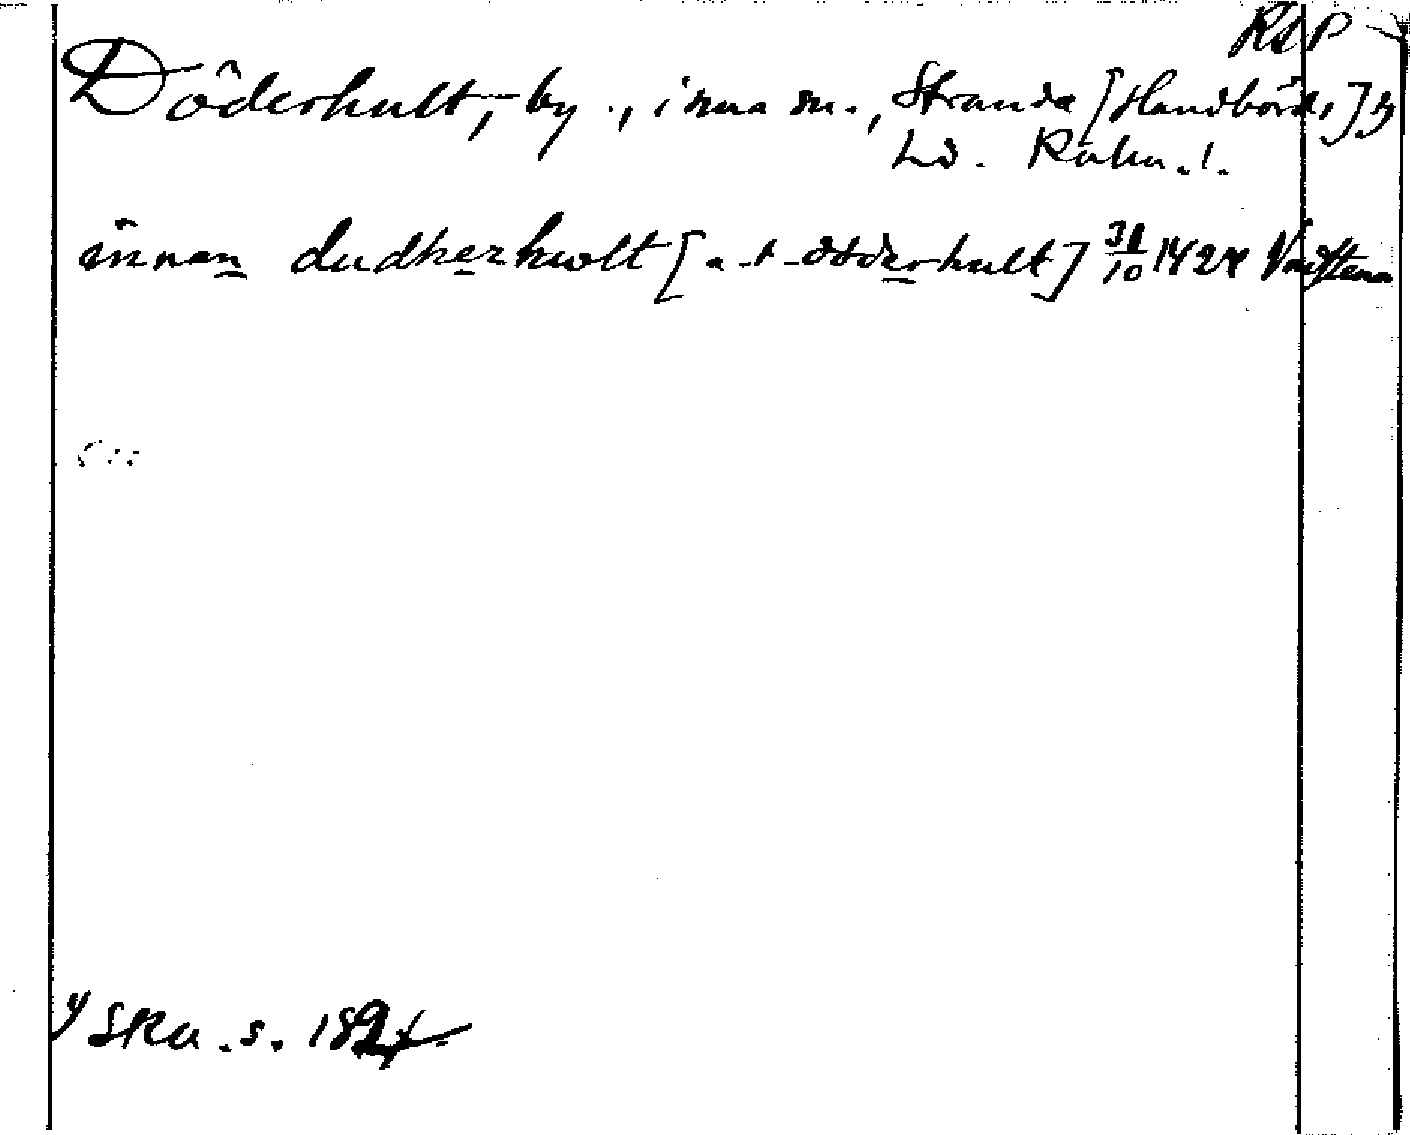 RAP
Döderhult, by., i sma sn., Stranda [Handbörds]
hd. Kalm. l.
innan dudherhwlt [ a.t. döderhult] 31/10 1424 Vadstena
Ska. s. 182